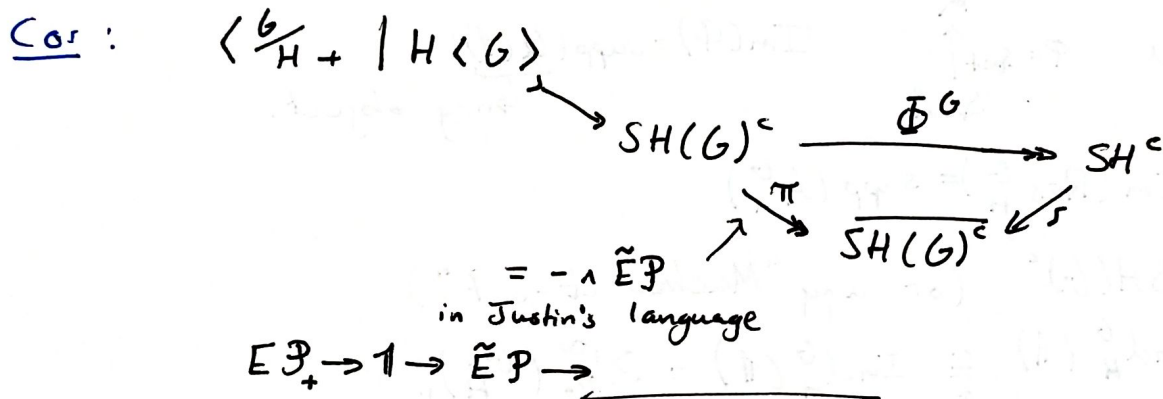 Cor : ⟨ G/H + | H < G ⟩
Φ^G
SH(G)^c → SH^c
π
\overline{SH(G)}^c
= - ∧ ẼP
in Justin's language
EP_+ → 𝟙 → ẼP →